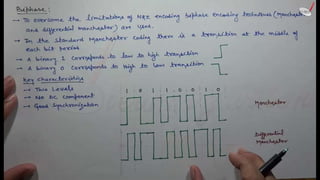 Biphase:
→ To overcome the limitations of NRZ encoding Biphase encoding techniques (Manchester
and differential manchester) are used.
→ In the standard Manchester coding there is a transition at the middle of
each bit period
→ A binary 1 corresponds to low to high transition
→ A binary 0 corresponds to high to low transition
Key characteristics
→ Two Levels
→ No DC component
→ Good Synchronization
Manchester
Differential
Manchester